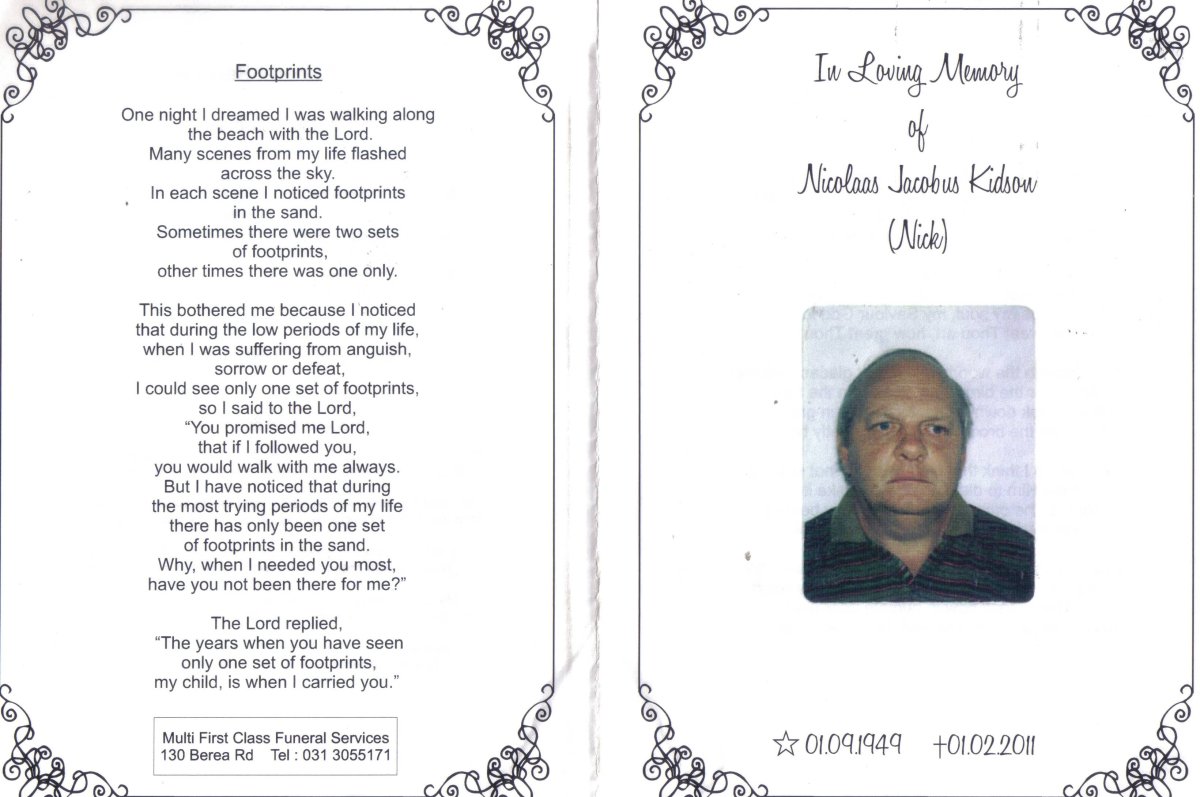 Footprints
One night I dreamed I was walking along
the beach with the Lord.
Many scenes from my life flashed
across the sky.
In each scene I noticed footprints
in the sand.
Sometimes there were two sets
of footprints,
other times there was one only.
This bothered me because I noticed
that during the low periods of my life,
when I was suffering from anguish,
sorrow or defeat,
I could see only one set of footprints,
so I said to the Lord,
“You promised me Lord,
that if I followed you,
you would walk with me always.
But I have noticed that during
the most trying periods of my life
there has only been one set
of footprints in the sand.
Why, when I needed you most,
have you not been there for me?”
The Lord replied,
“The years when you have seen
only one set of footprints,
my child, is when I carried you.”
Multi First Class Funeral Services
130 Berea Rd Tel : 031 3055171
In Loving Memory
of
Nicolaas Jacobus Kidson
(Nick)
☆ 01.09.1949 †01.02.2011